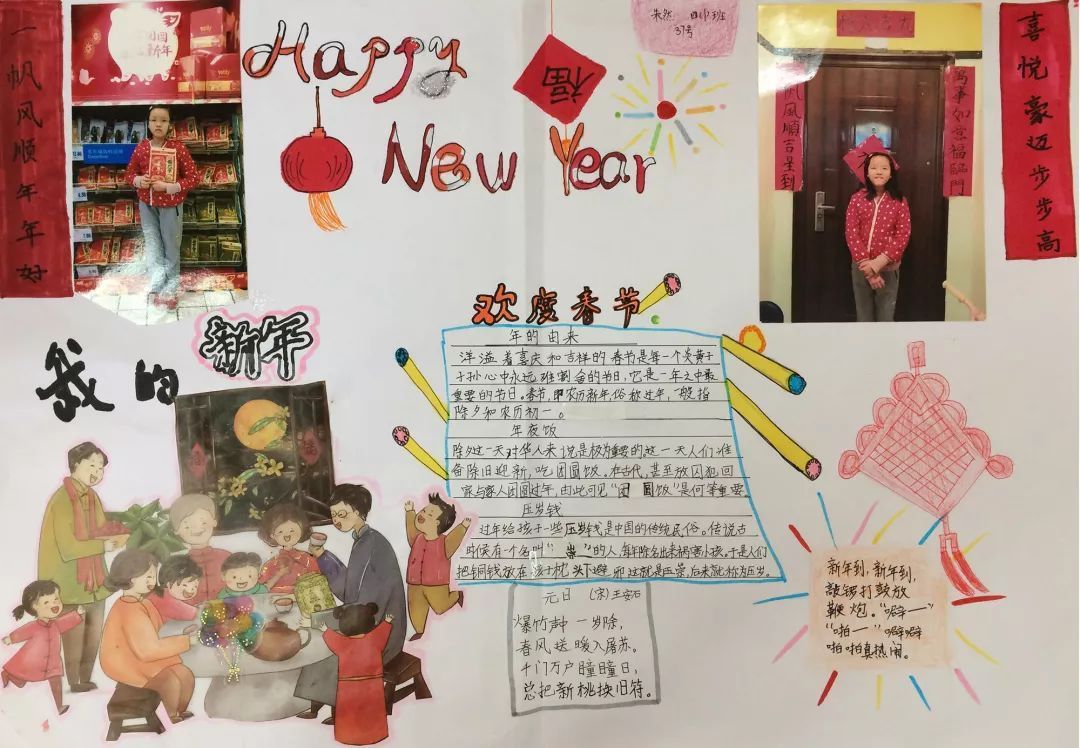 一帆风顺年年好
Happy
New Year
福
朱然 四巾班
37号
萬事如意福臨門
帆風順吉星到
喜悦豪迈步步高
我的新年
欢度春节
年的由来
洋溢着喜庆和吉祥的春节是每一个炎黄子
子孙心中永远难割舍的节日,它是一年之中最
重要的节日。春节,即农历新年俗称过年,一般指
除夕和农历初一。
年夜饭
除夕这一天对华人来说是极为重要的这一天人们准
备除旧迎新,吃团圆饭。在古代,甚至放囚犯回
家与家人团圆过年,由此可见“团圆饭”是何等重要
压岁钱
过年给孩子一些压岁钱是中国的传统民俗。传说古
时候有个名叫“祟”的人,每年除夕出来祸害小孩。于是人们
把铜钱放在孩子枕头下避邪这就是压祟,后来就称为压岁。
元日 (宋)王安石
爆竹声中一岁除,
春风送暖入屠苏。
千门万户瞳瞳日,
总把新桃换旧符。
新年到,新年到,
敲锣打鼓放
鞭炮。“噼一”
“啪一”噼噼
啪啪真热闹。